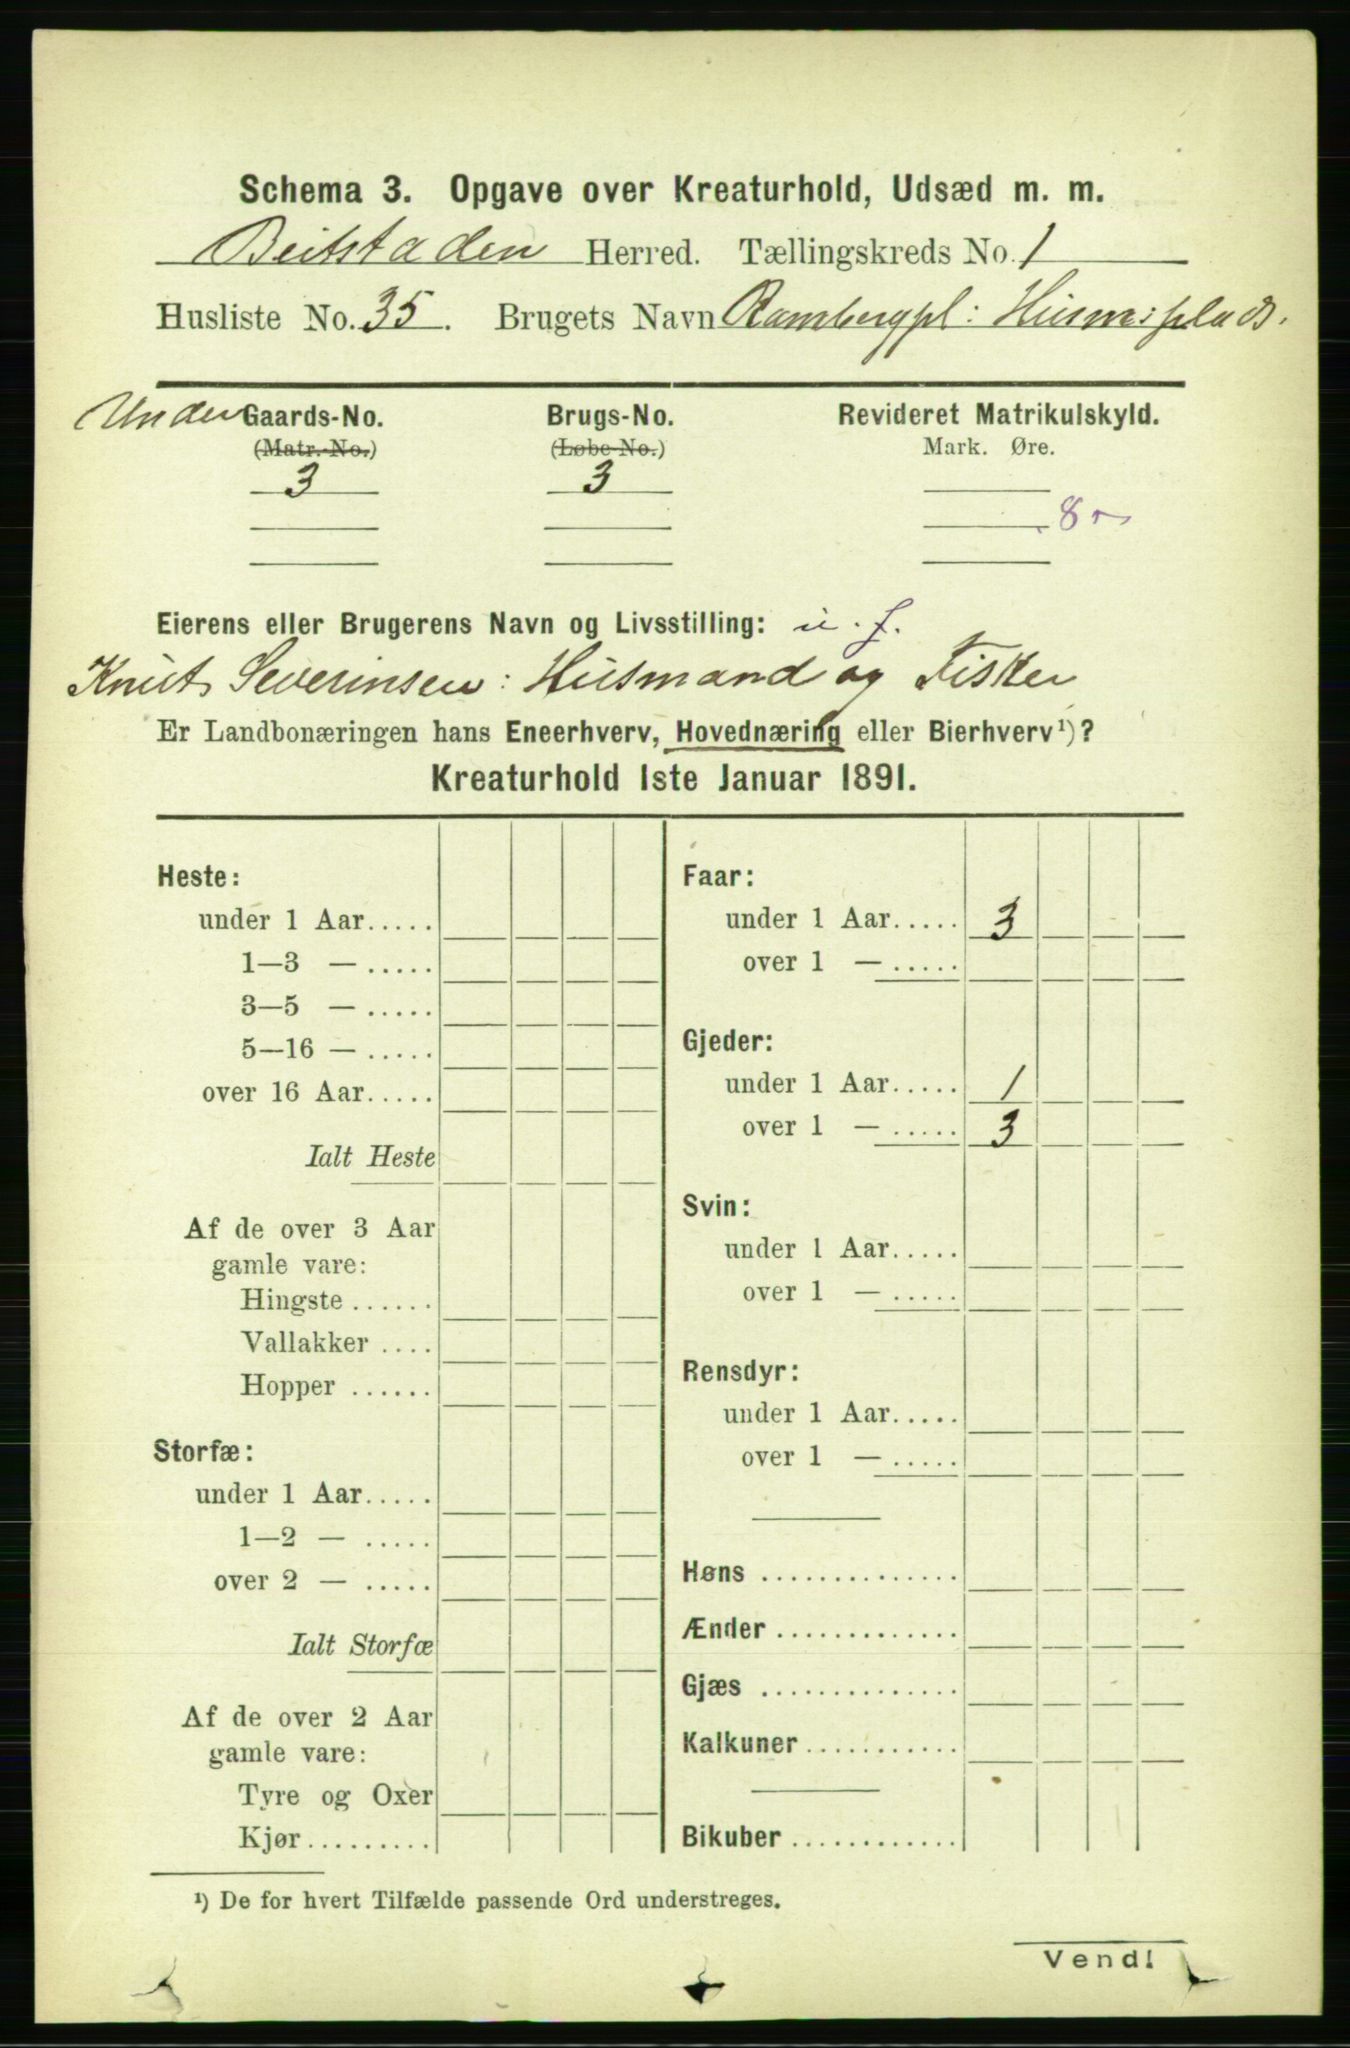 Schema 3. Opgave over Kreaturhold, Udsæd m. m.
Beitstaden Herred. Tællingskreds No. 1
Husliste No. 35. Brugets Navn Rambergpl: Husm:plads.
Under Gaards-No. Brugs-No. Revideret Matrikulskyld.
(Matr.-No.) (Løbe-No.) Mark. Øre.
3 3
8
Eierens eller Brugerens Navn og Livsstilling: u. f.
Knut Severinsen: Husmand og Fisker
Er Landbonæringen hans Eneerhverv, Hovednæring eller Bierhverv¹)?
Kreaturhold 1ste Januar 1891.
Heste:
under 1 Aar.....
1—3 — .....
3—5 — .....
5—16 — .....
over 16 Aar.....
Ialt Heste
Af de over 3 Aar
gamle vare:
Hingste ......
Vallakker ....
Hopper ......
Storfæ:
under 1 Aar.....
1—2 — .....
over 2 — .....
Ialt Storfæ
Af de over 2 Aar
gamle vare:
Tyre og Oxer
Kjør.........
Faar:
under 1 Aar..... 3
over 1 — .....
Gjeder:
under 1 Aar..... 1
over 1 — ..... 3
Svin:
under 1 Aar.....
over 1 — .....
Rensdyr:
under 1 Aar.....
over 1 — .....
Høns ..............
Ænder .............
Gjæs ..............
Kalkuner...........
Bikuber ............
¹) De for hvert Tilfælde passende Ord understreges.
Vend!